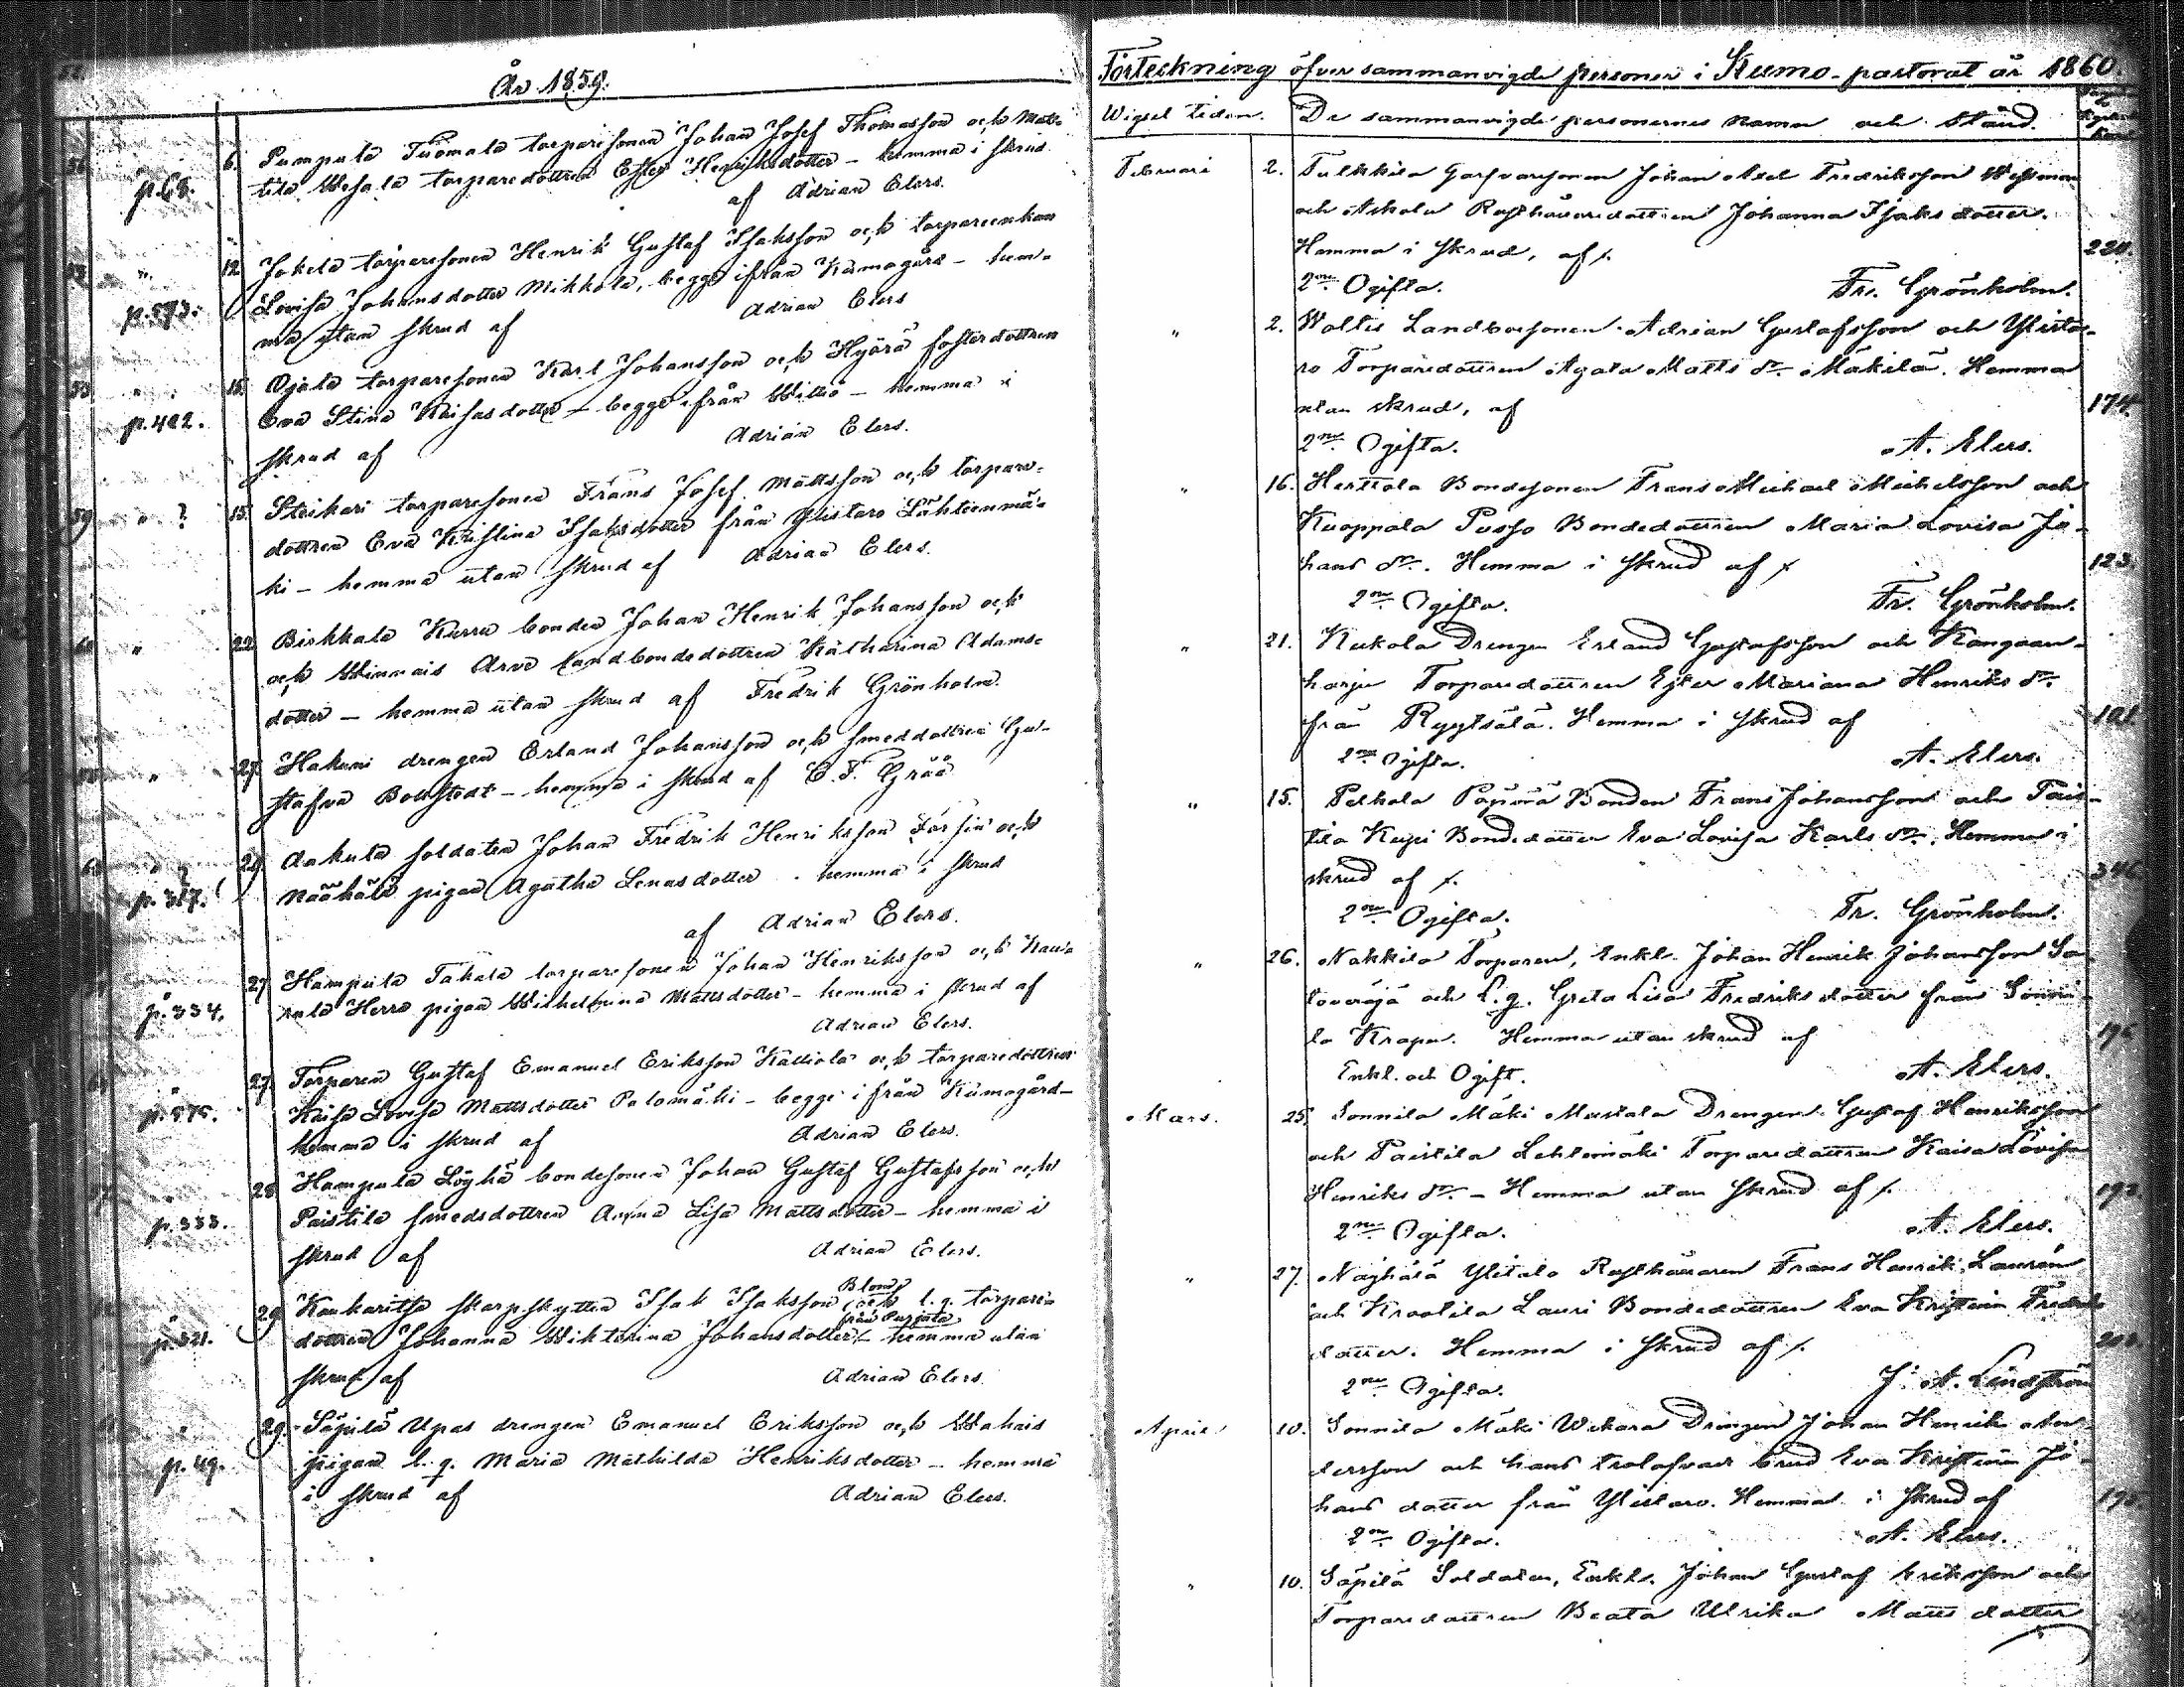 År 1859.
p.68.
6. Pumpula Tuomala torparesonen Johan Josef Thomasson och Matt-
tila Wesala torparedottren Ester Henriksdotter - hemma i skrud
af Adrian Elers.
12. Jokela torparesonen Henrik Gustaf Isaksson och torpareenkan
p.573.
Lovisa Johansdotter Mikkola, begge ifrån Kumogård - hem-
ma utan skrud af Adrian Elers
15. Ojala torparesonen Karl Johansson och Hyörä fosterdottren
p.402.
Eva Stina Kaisasdotter - begge ifrån Wittiö - hemma i
skrud af Adrian Elers.
59 " ? 15. torparesonen Frans Josef Mattsson och torpare-
dottren Eva Kristina Isaksdotter från Ylistaro Lähteenmä-
ki - hemma utan skrud af Adrian Elers.
" 22. Kurru bonden Johan Henrik Johansson och
och Winnais Arve landbondedottren Katharina Adams-
dotter - hemma utan skrud af Fredrik Grönholm.
" 27. Hakuni drengen Erland Johansson och smeddottren Gu-
stafva - hemma i skrud af C. F. Gråå
Aakula soldaten Johan Fredrik Henriksson Forsin och
Näähälä pigan Agatha Lenasdotter - hemma i skrud
af Adrian Elers.
27 Hampula Takala torparesonen Johan Henriksson och Kau-
p.334.
Herra pigan Wilhelmina Mattsdotter - hemma i skrud af
Adrian Elers.
27. Torparen Gustaf Emanuel Eriksson Kalliola och torparedottren
p.575.
Kaisa Lovisa Mattsdotter Palomäki - begge ifrån Kumogård -
hemma i skrud af Adrian Elers.
28 Hampula Löyhä bondesonen Johan Gustaf Gustafsson och
p.333.
Paistila smedsdottren Anna Lisa Mattsdotter - hemma i
skrud af Adrian Elers.
Blom
29. Kaukaritsa skarpskytten Isak Isaksson och l. q. torpare-
från Purjala
dottren Johanna Wiktorina Johansdotter - hemma utan
skrud af Adrian Elers.
29. Säpilä Upas drengen Emanuel Eriksson och Wahais
p.49.
pigan l. q. Maria Mathilda Henriksdotter - hemma
i skrud af Adrian Elers.
Förteckning öfver sammanvigde personer i Kumo-pastorat år 1860.
Wigsel tiden. De sammanvigde personernes namn och Stånd.
Februari 2. Tulkkila Garfvaresonen Johan Axel Fredriksson
och Askola Rusthållaredottren Johanna Isaks dotter.
Hemma i Skrud, af /. 220.
2ne Ogifta. Fr. Grönholm.
" 2. Waltis Landbosonen Adrian Gustafsson och Ylista-
ro Torparedottren Agata Matts dr. Mäkilä. Hemma
utan skrud, af 174.
2ne Ogifta. A. Elers.
" 16. Herttola Bondesonen Frans Michael Michelsson och
Kuoppala Pusso Bondedottren Maria Lovisa Jo-
hans dr. Hemma i Skrud af / 123.
2ne Ogifta. Fr. Grönholm.
" 21. Kukola Drengen Erland Gustafsson och Kangaan-
harju Torparedottren Ester Mariana Henriks dr.
från Ryytsälä. Hemma i Skrud af 101.
2ne Ogifta. A. Elers.
" 15. Pelhola Bonden Frans Johansson och Pais-
tila Kupi Bondedotter Eva Lovisa Karls dr. Hemma i
skrud af /. 346
2ne Ogifta. Fr. Grönholm.
" 26. Nakkila Torparen, Enkl. Johan Henrik Johansson Sa-
loveräjä och L. q. Greta Lisa Fredriks dotter från Sonni-
la Krapu. Hemma utan skrud af 196
Enkl. och Ogift. A. Elers.
Mars. 25. Sonnila Mäki Mustala Drengen Gustaf Henriksson
och Paistila Lehtimäki Torparedottren Kaisa Lovisa
Henriks dr. - Hemma utan Skrud af /. 193.
2ne Ogifta. A. Elers.
" 27. Näyhälä Ylitalo Rusthållaren Frans Henrik Laurén
och Kraatila Lauri Bondedottren Eva Kristina Fredriks
dotter. Hemma i Skrud af /.
2ne Ogifta. J. A. Lindström
April 10. Sonnila Mäki Wehara Drengen Johan Henrik An-
dersson och hans trolofvade brud Eva Kristina Jo-
hans dotter från Ylistaro. Hemma i Skrud af
2ne Ogifta. A. Elers.
" 10. Säpilä Soldaten, Enkl. Johan Gustaf Eriksson och
Torparedottren Beata Ulrika Matts dotter